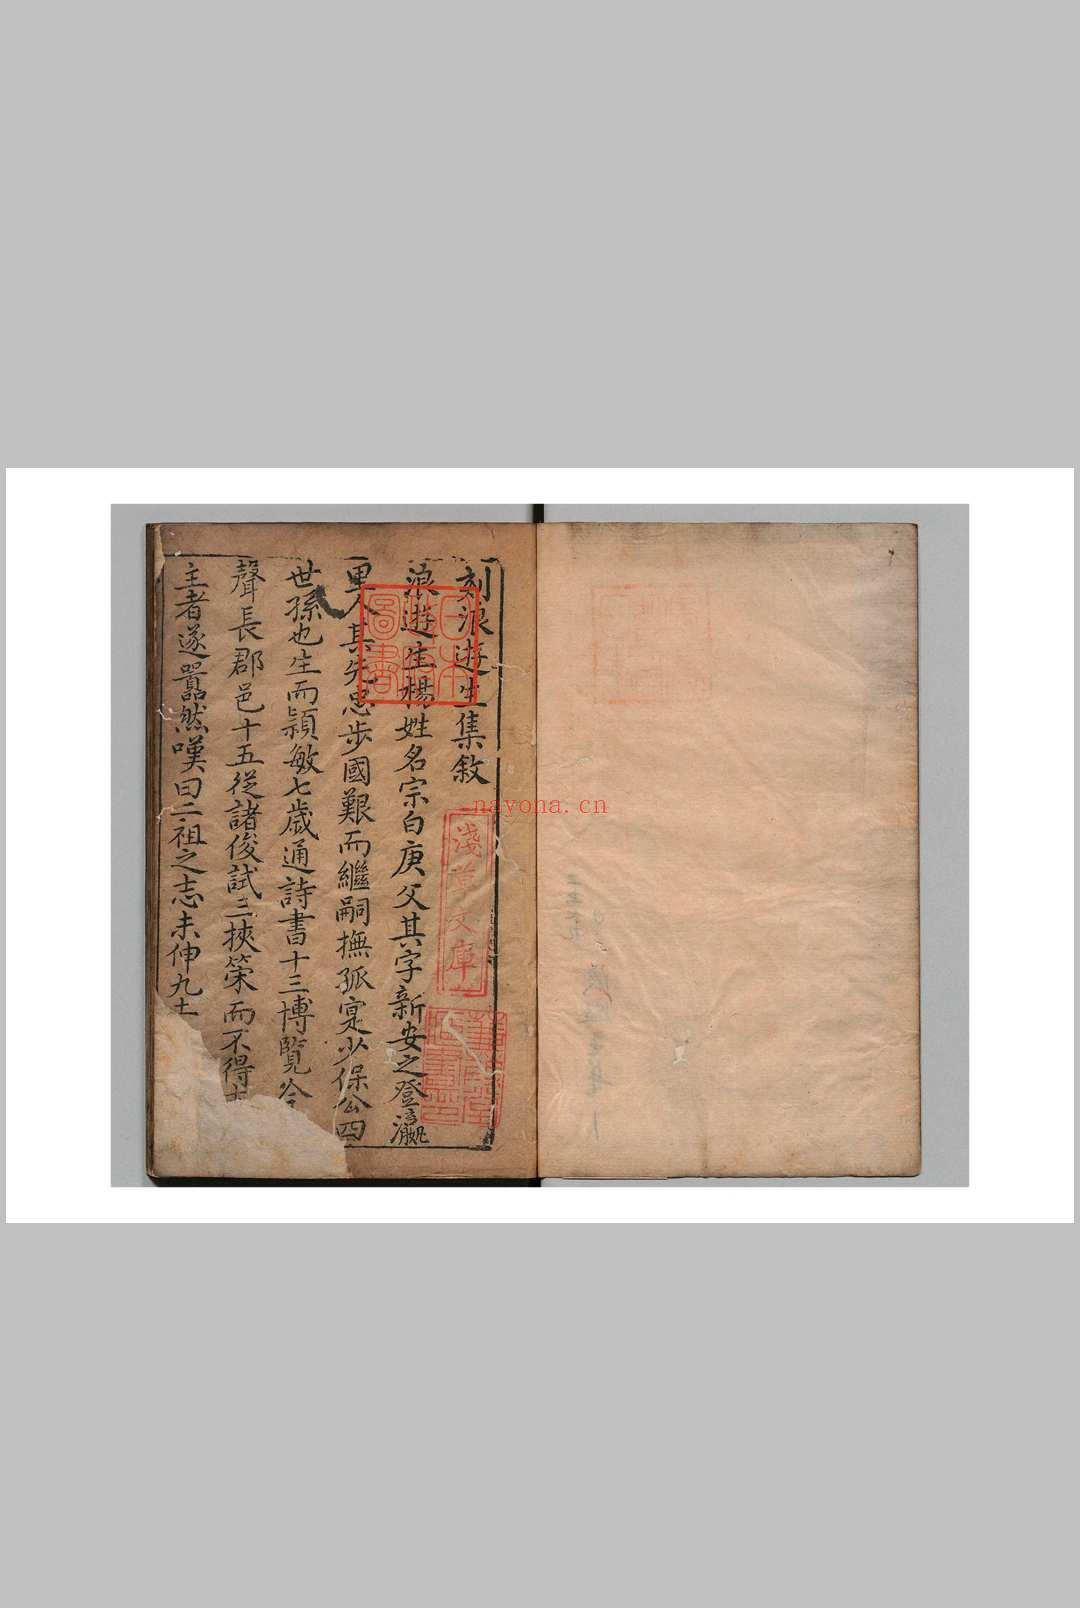 刻浪遊生集敘
浪遊生楊姓名宗白庚父其字新安之登瀛
里人其先忠步國艱而繼嗣撫孤寔少保公四
世孫也生而頴敏七歲通詩書十三博覽
聲長郡邑十五從諸俊試三挾筞而不得
主者遂嚣然嘆曰二祖之志未伸九
日本
圖書
淺草文庫
nayona.cn